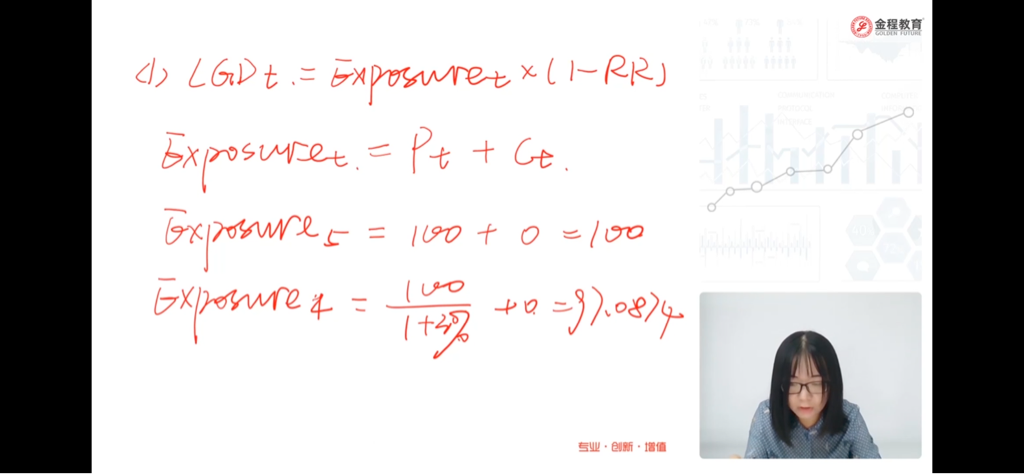 金程教育
GOLDEN FUTURE
<1> LGDt = Exposuret × (1-RR)
Exposuret = Pt + Ct.
Exposure5 = 100 + 0 = 100
Exposure4 = 100/1+3% + 0 = 97.0874
专业·创新·增值